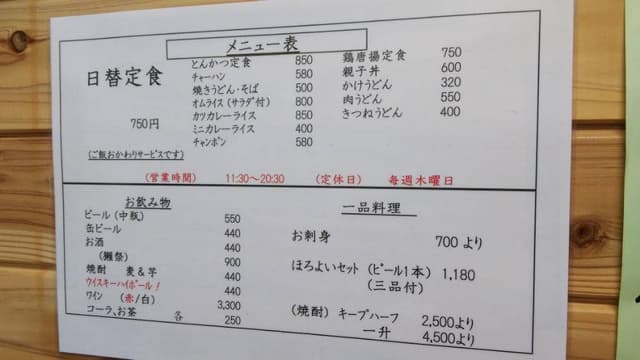 メニュー表
日替定食
750円
(ご飯おかわりサービスです)
とんかつ定食 850
チャーハン 580
焼きうどん・そば 500
オムライス(サラダ付) 800
カツカレーライス 850
ミニカレーライス 400
チャンポン 580
鶏唐揚定食 750
親子丼 600
かけうどん 320
肉うどん 550
きつねうどん 400
(営業時間) 11:30～20:30 (定休日) 毎週木曜日
お飲み物
ビール(中瓶) 550
缶ビール 440
お酒 440
(獺祭) 900
焼酎 麦&芋 440
ウイスキーハイボール! 440
ワイン (赤/白) 3,300
コーラ、お茶 各 250
一品料理
お刺身 700より
ほろよいセット (ビール1本) 1,180
(三品付)
(焼酎) キープハーフ 2,500より
一升 4,500より